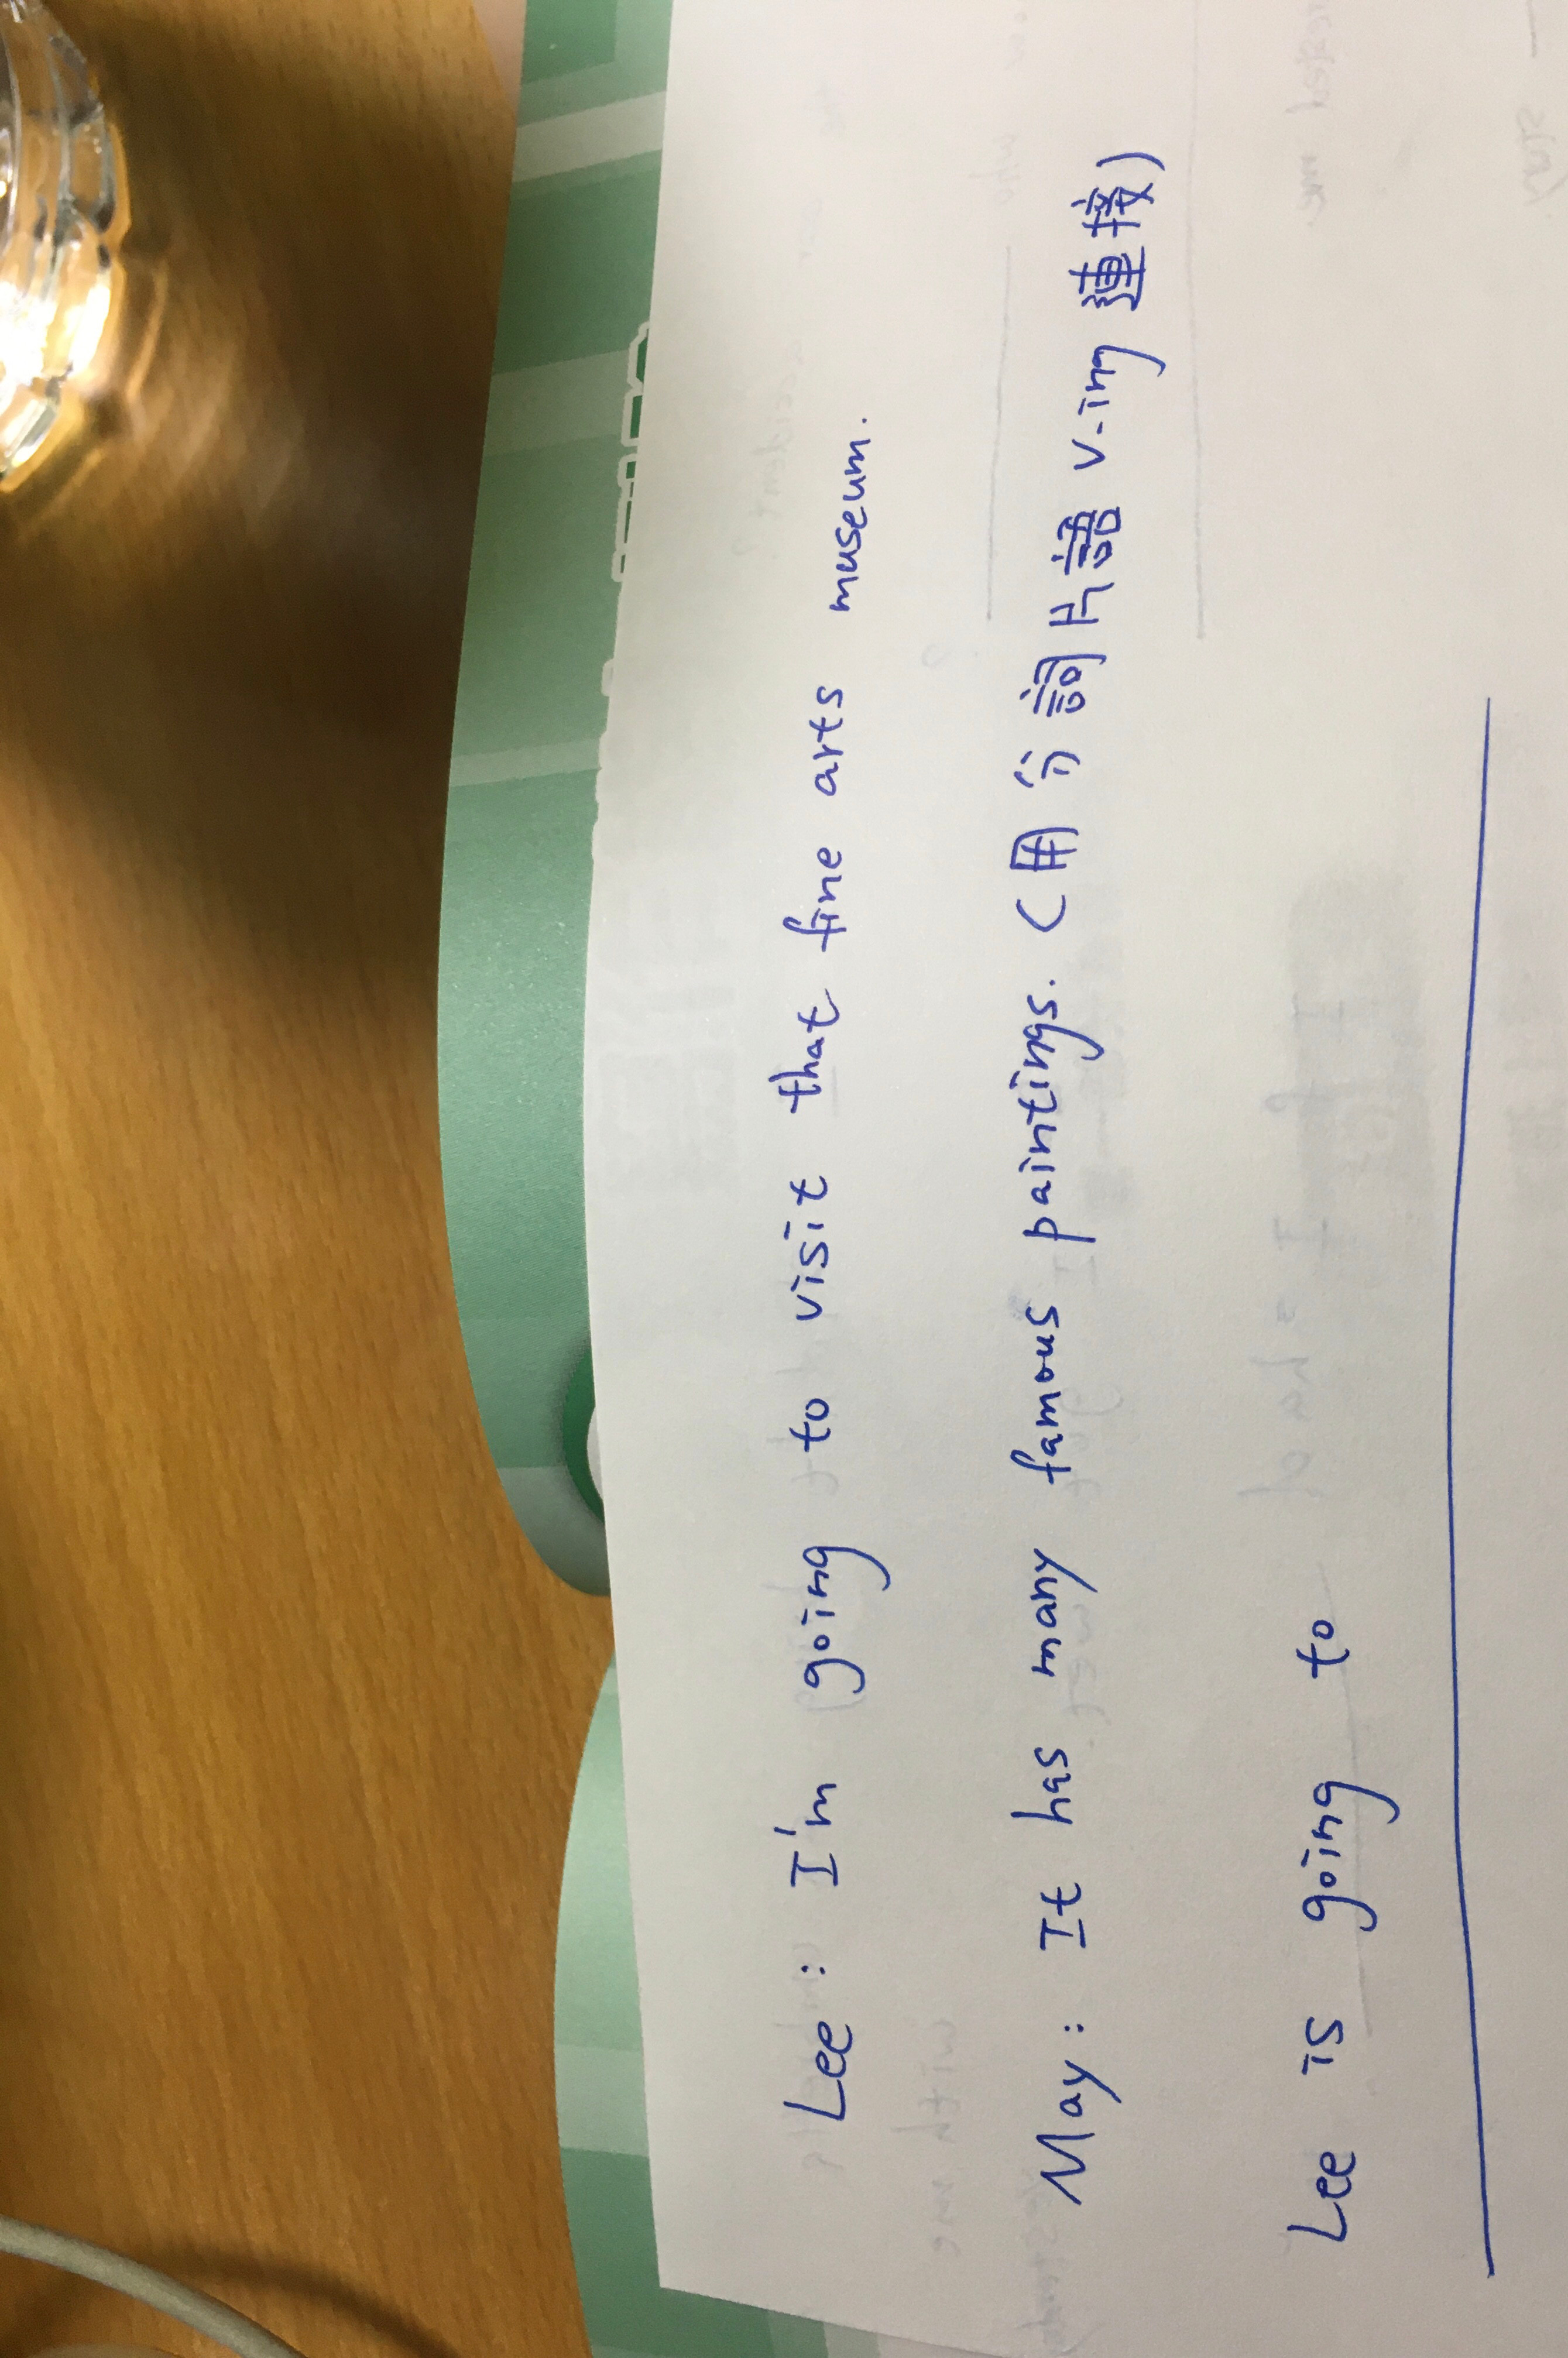 Lee : I'm going to visit that fine arts museum.
May : It has many famous paintings. (用分詞片語 V-ing 連接)
Lee is going to